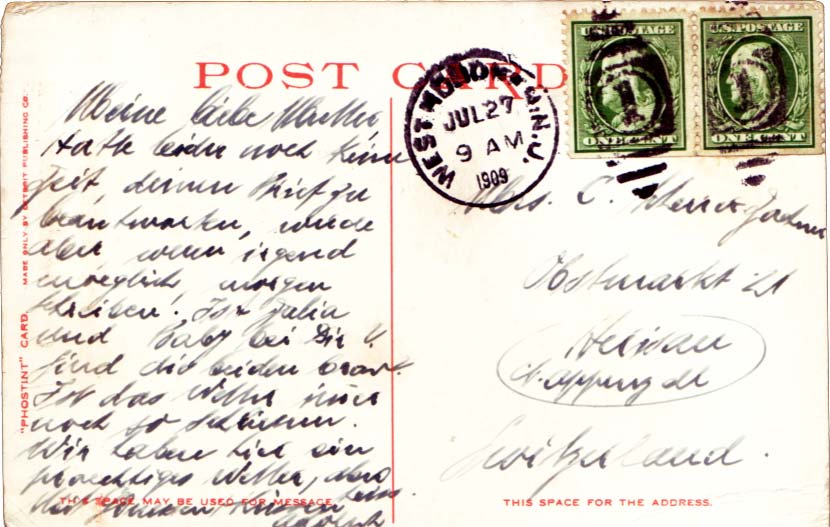 POST CARD
WEST HOBOKEN, N.J.
JUL 27
9 AM
1909
U.S. POSTAGE
ONE CENT
U.S. POSTAGE
ONE CENT
Meine liebe Mutter
Hatte leider noch keine
Zeit, deinen Brief zu
beantworten, werde
aber wenn irgend
moeglich morgen
schreiben! Ist Julia
und Baby bei Dir u.
sind die beiden brav.
Ist das Wetter immer
noch so
Wir haben hier ein
praechtiges Wetter,
Mrs. C.
Obstmarkt 21
Herisau
Appenzell
Switzerland.
"PHOSTINT" CARD. MADE ONLY BY DETROIT PUBLISHING CO.
THIS SPACE MAY BE USED FOR MESSAGE.
THIS SPACE FOR THE ADDRESS.